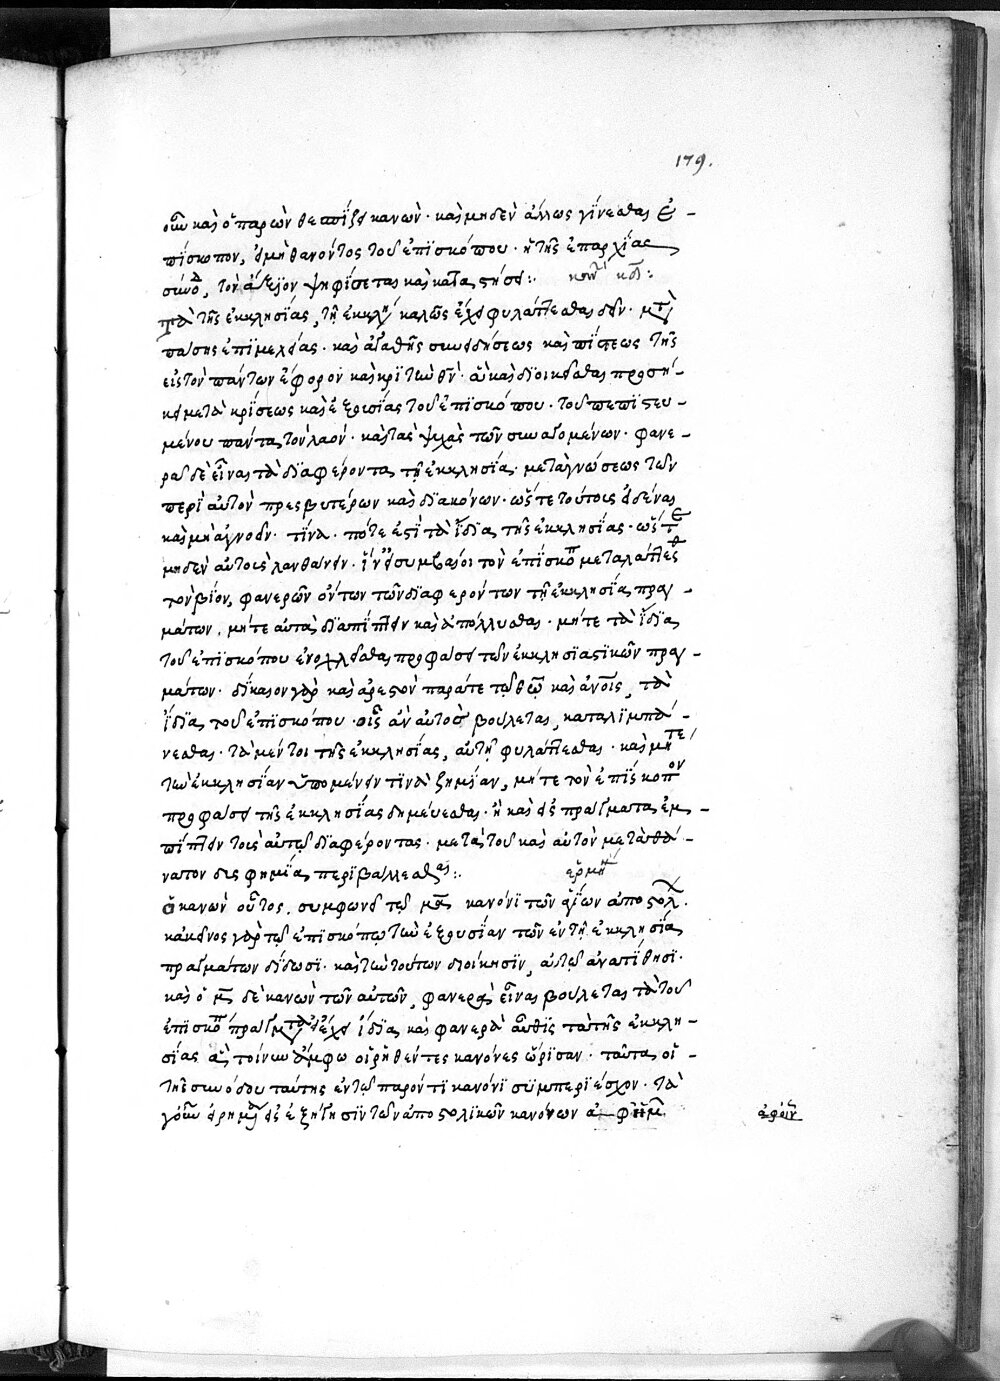 179.
οὖν καὶ ὁ παρὼν θεσπίζει κανών· καὶ μηδὲν ἄλλως γίνεσθαι ἐ-
πίσκοπον, εἰ μὴ θανόντος τοῦ ἐπισκόπου· ἡ τῆς ἐπαρχίας
σύνοδ, τὸν ἄξιον ψηφίσεται καὶ καταστήσει:
Τὰ τῆς ἐκκλησίας, τῇ ἐκκλη καλῶς ἔχει φυλάττεσθαι δεῖν· μετὰ
πάσης ἐπιμελείας· καὶ ἀγαθῆς συνειδήσεως καὶ πίστεως τῆς
εἰς τὸν πάντων ἔφορον καὶ κριτὴν θν· ἃ καὶ διοικεῖσθαι προσή-
κει μετὰ κρίσεως καὶ ἐξουσίας τοῦ ἐπισκόπου· τοῦ πεπιστευ-
μένου πάντα τὸν λαόν· καὶ τὰς ψυχὰς τῶν συναγομένων· φανε-
ρὰ δὲ εἶναι τὰ διαφέροντα τῇ ἐκκλησίᾳ· μετὰ γνώσεως τῶν
περὶ αὐτὸν πρεσβυτέρων καὶ διακόνων· ὥστε τούτους εἰδέναι
καὶ μὴ ἀγνοεῖν· τίνα ποτέ ἐστὶ τὰ ἴδια τῆς ἐκκλησίας· ὥστε
μηδὲν αὐτοὺς λανθάνειν· ἵν' εἰ συμβαίοι τὸν ἐπίσκοπ μεταλάττειν
τὸν βίον, φανερῶν ὄντων τῶν διαφερόντων τῇ ἐκκλησίᾳ πραγ-
μάτων, μήτε αὐτὰ διαπίπτειν καὶ ἀπόλλυσθαι· μήτε τὰ ἴδια
τοῦ ἐπισκόπου ἐνοχλεῖσθαι προφάσει τῶν ἐκκλησιαστικῶν πραγ-
μάτων· δίκαιον γὰρ καὶ ἀρεστὸν παρά τε τῷ θῷ καὶ ἀνοις, τὰ
ἴδια τοῦ ἐπισκόπου οἷς ἂν αὐτὸς βούλεται, καταλιμπά-
νεσθαι· τὰ μέντοι τῆς ἐκκλησίας, αὐτῇ φυλάττεσθαι· καὶ μήτε
τὴν ἐκκλησίαν ὑπομένειν τινὰ ζημίαν, μήτε τὸν ἐπίσκοπον
προφάσει τῆς ἐκκλησίας δημεύεσθαι· ἢ καὶ εἰς πράγματα ἐμ-
πίπτειν τοὺς αὐτῷ διαφέροντας· μετὰ τοῦ καὶ αὐτὸν μετὰ θά-
νατον δυσφημίᾳ περιβάλλεσθαι:
ἑρμη
Ὁ κανὼν οὗτος, συμφωνεῖ τῷ μα κανόνι τῶν ἁγίων ἀποστολ.
κἀκεῖνος γὰρ τῷ ἐπισκόπῳ τὴν ἐξουσίαν τῶν ἐν τῇ ἐκκλησίᾳ
πραγμάτων δίδωσι· καὶ τὴν τούτων διοίκησιν, αὐτῷ ἀνατίθησι·
καὶ ὁ μ δὲ κανὼν τῶν αὐτῶν, φανερὰ εἶναι βούλεται τὰ τοῦ
ἐπισκόπ πράγματα εἰ ἔχει ἴδια, καὶ φανερὰ αὖθις τὰ τῆς ἐκκλη-
σίας ἃ τοίνυν ἄμφω οἱ ῥηθέντες κανόνες ὥρισαν· ταῦτα οἱ
τῆς συνόδου ταύτης ἐν τῷ παρόντι κανόνι συμπεριέσχον· τὰ
γοῦν εἰρημ εἰς ἐξήγησιν τῶν ἀποστολικῶν κανόνων